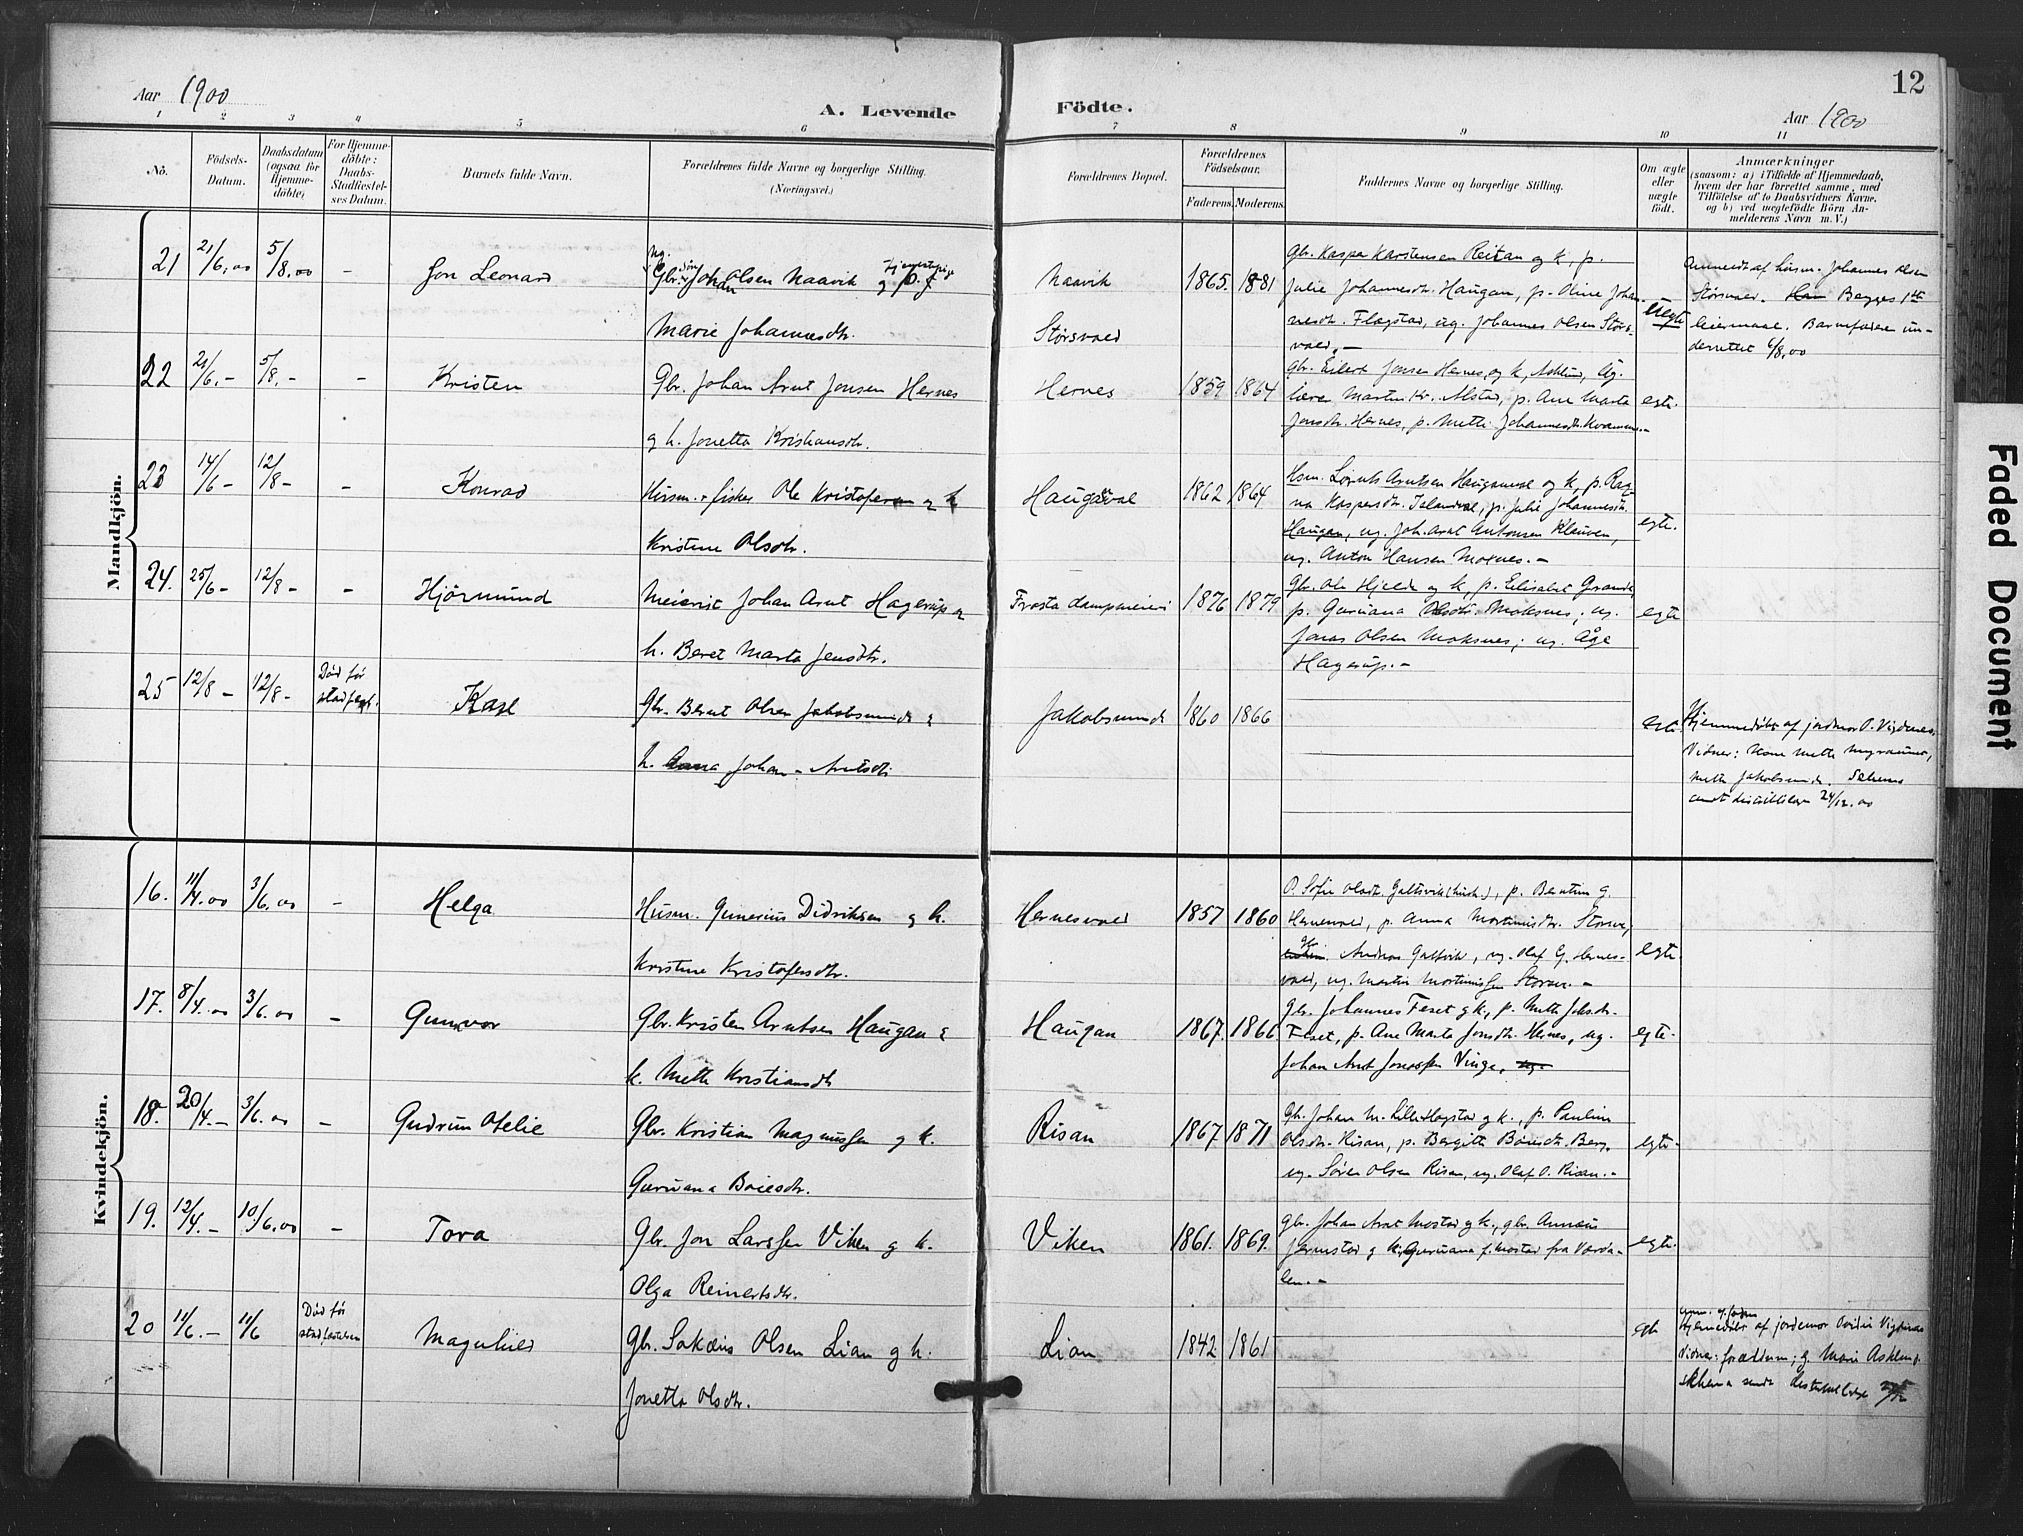 12
Aar 1900
A. Levende Födte.
Aar 1900
1 2 3 4 5 6 7 8 9 10 11
No.
Födsels-
Datum.
Daabsdatum
(ogsaa for
Hjemme-
döbte)
For Hjemme-
döbte:
Daabs-
Stadfæstel-
ses Datum.
Barnets fulde Navn.
Forældrenes fulde Navne og borgerlige Stilling.
(Næringsvei.)
Forældrenes Bopæl.
Forældrenes
Födselsaar.
Faderens. Moderens.
Faddernes Navne og borgerlige Stilling.
Om ægte
eller
uægte
født.
Anmærkninger
(saasom: a) i Tilfælde af Hjemmedaab,
hvem der har forrettet samme, med
Tilföielse af to Daabsvidners Navne,
og b) ved uægtefödte Börn An-
melderens Navn m. V.)
Mandkjön.
21 21/6,00 5/8,00 - Jon Leonard
Ug. Gbr. Johan Olsen Naavik og p.
Marie Johannesdtr.
Naavik
Störsvald
1865. 1881
Gbr. Kasper Karstensen Reitan og k, p.
Julie Johannesdtr. Haugan, p. Oline Johan-
nesdtr. Flagstad, ug. Johannes Olsen Störs-
vald. -
uegte
Anmeldt af husm. Johannes Olsen
Störsvald. Begges 1ste
leiermaal. Barnefaderen un-
derrettet 6/8,00
22 21/6.- 5/8.- - Kristen
Gbr. Johan Arnt Jonsen Hernes
og h. Jonetta Kristiansdtr.
Hernes 1859 1864
Gbr. Eilert Jonsen Hernes, og k, Asklund, Ug.
lærer Martin Kr. Alstad, p. Ane Marta
Jonsdtr. Hernes, p. Mette Johannesdtr.
egte.
23 14/6- 12/8- - Konrad
Husm. & fisker Ole Kristofersen og h
Kristine Olsdtr.
Hauganval 1862 1864
Hsm. Lorents Arntsen Hauganval og k, p. Rag-
na Kaspersdtr., p. Julie Johannesdtr.
Haugan, ug. Joh. Arnt Antonsen Klauven,
ug. Anton Hansen Moxnes. -
egte.
24. 25/6- 12/8- - Hjörmund
Meierist Johan Arnt Hagerup og
h. Beret Marta Jensdtr.
Frosta dampmeieri 1876 1879
Gbr. Ole Hjelde og k, p. Elisabet Grande,
p. Guruana Olsdtr. Moksnes, ug.
Jonas Olsen Moksnes; ug. Åge
Hagerup. -
egte
25 12/8- 12/8- Död før
stadfæst.
Karl
Gbr. Bernt Olsen Jakobsmunde &
h. Anna Johan-Arntsdtr
Jakobsmunde 1860 1866
egte.
Hjemmedöbt af jordmor P. Vigdenes.
Vidner: Kone Mette Myraunet,
Mette Jakobsmunde. Schema
24/12.00
Kvindekjön.
16. 11/4.00 3/6,00 - Helga
Husm. Gunerius Didriksen og h.
Kristine Kristofersdtr.
Hernesvald 1857 1860
P. Sofie Olsdtr. Galtvik (hush.), p. Bentine G.
Hernesvald, p. Anna Mortinusdtr. Storve,
gbr. Andreas Galtvik, ug. Olaf G. Hernes-
vald, ug. Martin Mortinussen Storve. -
egte.
17. 8/4.00 3/6.00 - Gunvor
Gbr. Kristen Arntsen Haugan &
h. Mette Kristiansdtr
Haugan 1867. 1866
Gbr. Johannes Feset og k, p. Mette Johsdtr.
Feset, p. Ane Marta Jonsdtr. Hernes, ug.
Johan Arnt Jonassen Vinge.
egte.
18. 20/4.- 3/6.00 - Gudrun Otelie
Gbr. Kristian Magnussen og h.
Guruana Boiesdtr.
Risan 1867 1871
Gbr. Johan M. Lille-Hogstad og k., p. Pauline
Olsdtr. Risan, p. Bergitte Boiesdtr. Berg,
ug. Sören Olsen Risan, ug. Olaf O. Risan. -
egte.
19. 12/4.- 10/6.00 - Tora
Gbr. Jon Larssen Viken og h.
Olga Reinertsdtr.
Viken 1861. 1869.
Gbr. Johan Arnt Mostad og k., gbr. Anneus
Jermstad og k., Guruana J. Mostad fra Værda-
len. -
egte.
20 11/6.- 11/6 Död før
stadfæstelsen
Magnhild
Gbr. Sakæus Olsen Lian og h.
Jonetta Olsdtr.
Lian 1842. 1861
egte
Hjemmedöbt af jordemor Vigdenes
Vidner: forældrene; g. Marie Asklund.
Schema sendt
Faded Document